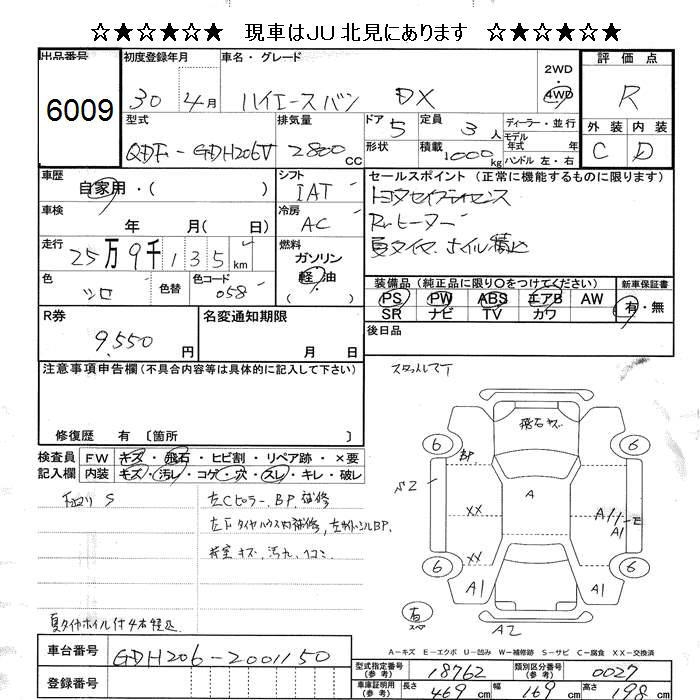 ☆★☆★☆★ 現車はJU北見にあります ☆★☆★☆★
出品番号 6009
初度登録年月 30年 4月
車名・グレード ハイエースバン DX
2WD・4WD
評価点 R
外装 C 内装 D
型式 QDF-GDH206V
排気量 2800cc
ドア 5 形状
定員 3人
積載 1000kg
ディーラー・並行
モデル年式 年式
ハンドル 左・右
車歴 自家用・( )
シフト IAT
セールスポイント (正常に機能するものに限ります)
トヨタセイフティセンス
Rrヒーター
夏タイヤ、ホイル積込
車検 年 月( 日)
冷房 AC
走行 25万9千135km
燃料 ガソリン・軽油 ( )
色 シロ 色替
色コード 058
装備品 (純正品に限り○をつけてください)
PS PW ABS エアB AW
SR ナビ TV カワ
新車保証書 有・無
R券 9,550円
名変通知期限 月 日
後日品
注意事項申告欄(不具合内容等は具体的に記入して下さい)
修復歴 有 〔箇所 〕
検査員記入欄
FW キズ・飛石・ヒビ割・リペア跡・×要
内装 キズ・汚レ・コゲ・穴・スレ・キレ・破レ
下回り S
左Cピラー、BP、補修
左F タイヤハウス内補修,左サイドシルBP.
荷室 キズ、汚れ、ヘコミ.
夏タイヤホイル付4本積込
スタットレスT
飛石キズ
6 6
BP
A
XX
A1
E
A1
XX
6 6
A1 A1
右 スペア
A2
A-キズ E-エクボ U-凹み W-補修跡 S-サビ C-腐食 XX-交換済
車台番号 GDH206-2001150
登録番号
型式指定番号(参考) 18762
類別区分番号(参考) 0027
車庫証明用(参考) 長さ 469cm 幅 169cm 高さ 198cm